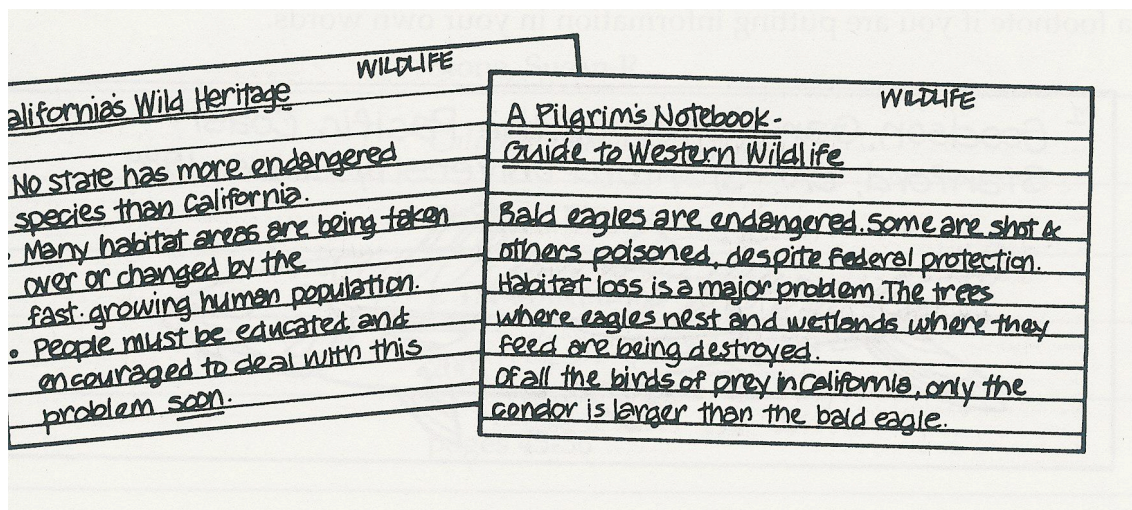 WILDLIFE
alifornia's Wild Heritage
No state has more endangered
species than California.
• Many habitat areas are being taken
over or changed by the
fast-growing human population.
• People must be educated and
encouraged to deal with this
problem soon.
WILDLIFE
A Pilgrim's Notebook-
Guide to Western Wildlife
Bald eagles are endangered. Some are shot &
others poisoned, despite federal protection.
Habitat loss is a major problem. The trees
where eagles nest and wetlands where they
feed are being destroyed.
Of all the birds of prey in California, only the
condor is larger than the bald eagle.